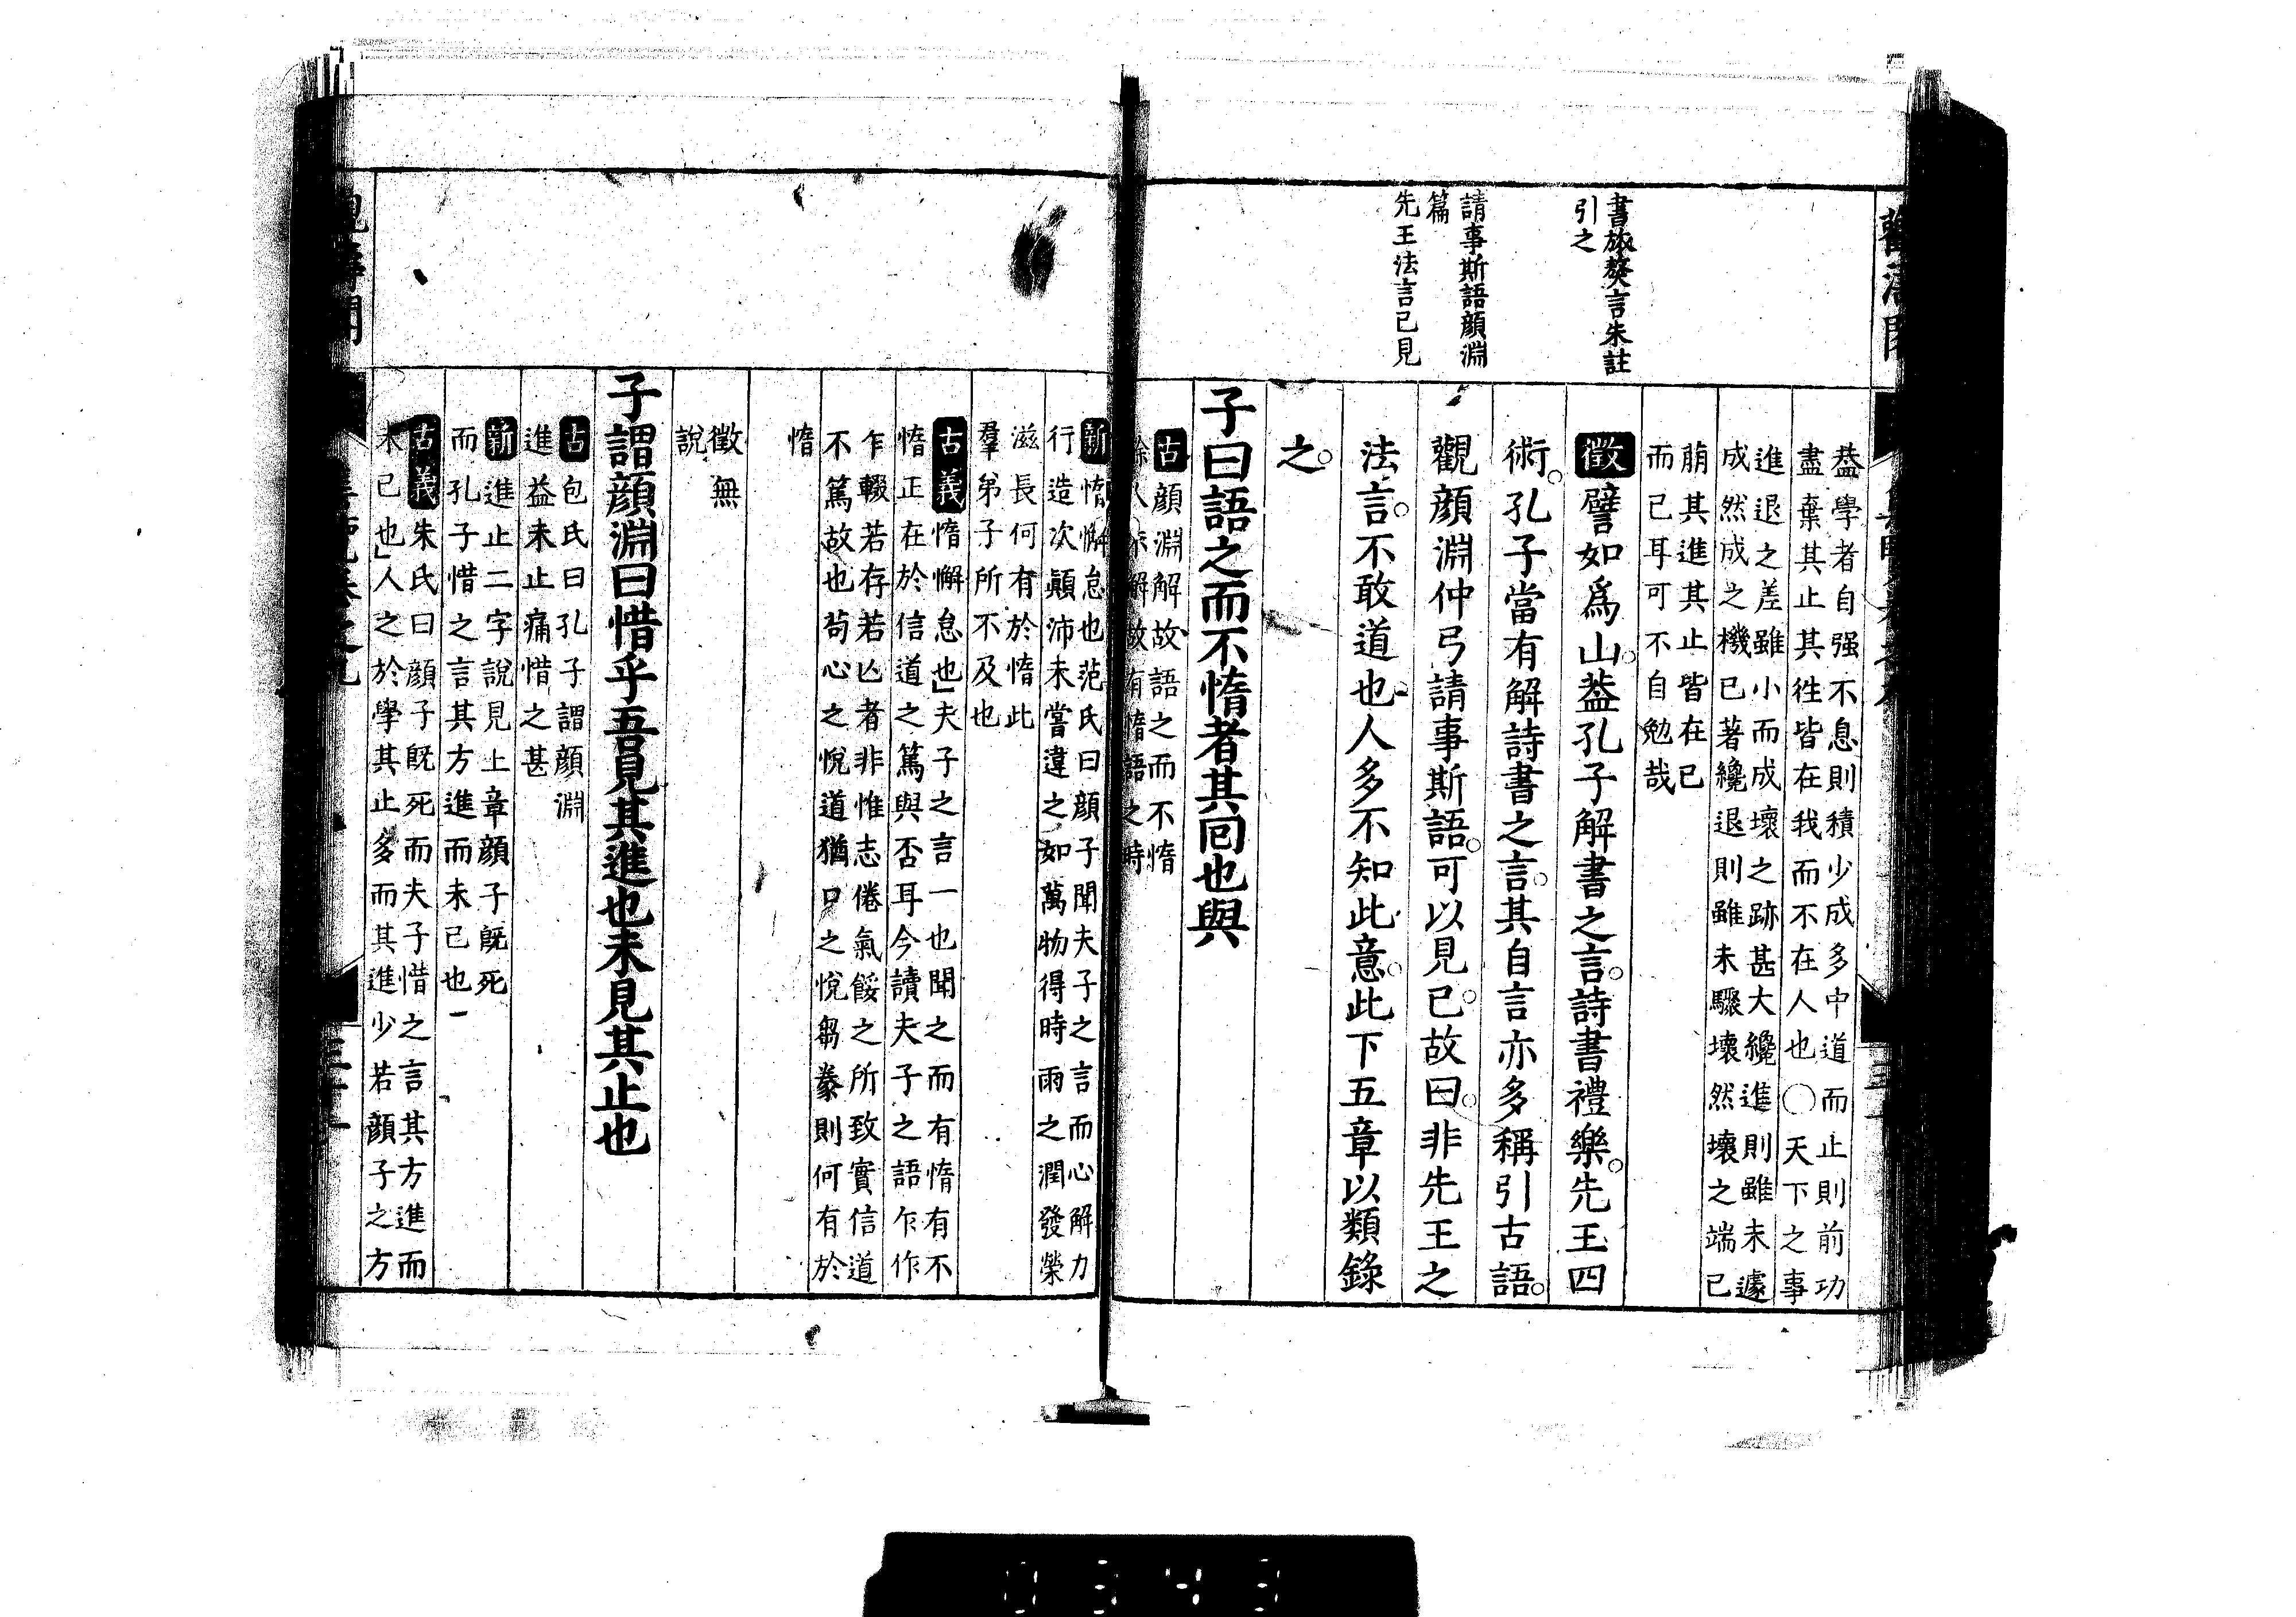 書旅獒言朱註
引之
請事斯語顔淵
篇
先王法言已見
葢學者自强不息則積少成多中道而止則前功
盡棄其止其徃皆在我而不在人也○天下之事
進退之差雖小而成壞之跡甚大纔進則雖未遽
成然成之機已著纔退則雖未驟壞然壞之端已
萠其進其止皆在已
而已耳可不自勉哉
徵譬如爲山。葢孔子解書之言。詩書禮樂。先王四
術。孔子當有解詩書之言。其自言亦多稱引古語。
觀顔淵仲弓請事斯語。可以見已。故曰。非先王之
法言。不敢道也。人多不知此意。此下五章以類錄
之。
子曰語之而不惰者其囘也與
古顔淵解故語之而不惰
餘人不解故有惰語之時
新惰懈怠也范氏曰顔子聞夫子之言而心解力
行造次顚沛未嘗違之如萬物得時雨之潤發榮
滋長何有於惰此
羣弟子所不及也
古義惰懈怠也」夫子之言一也聞之而有惰有不
惰正在於信道之篤與否耳今讀夫子之語乍作
乍輟若存若亾者非惟志倦氣餒之所致實信道
不篤故也苟心之悅道猶口之悅芻豢則何有於
惰
徵無
說
子謂顔淵曰惜乎吾見其進也未見其止也
古包氏曰孔子謂顔淵
進益未止痛惜之甚
新進止二字說見上章顔子旣死
而孔子惜之言其方進而未已也
古義朱氏曰顔子旣死而夫子惜之言其方進而
未已也」人之於學其止多而其進少若顔子之方